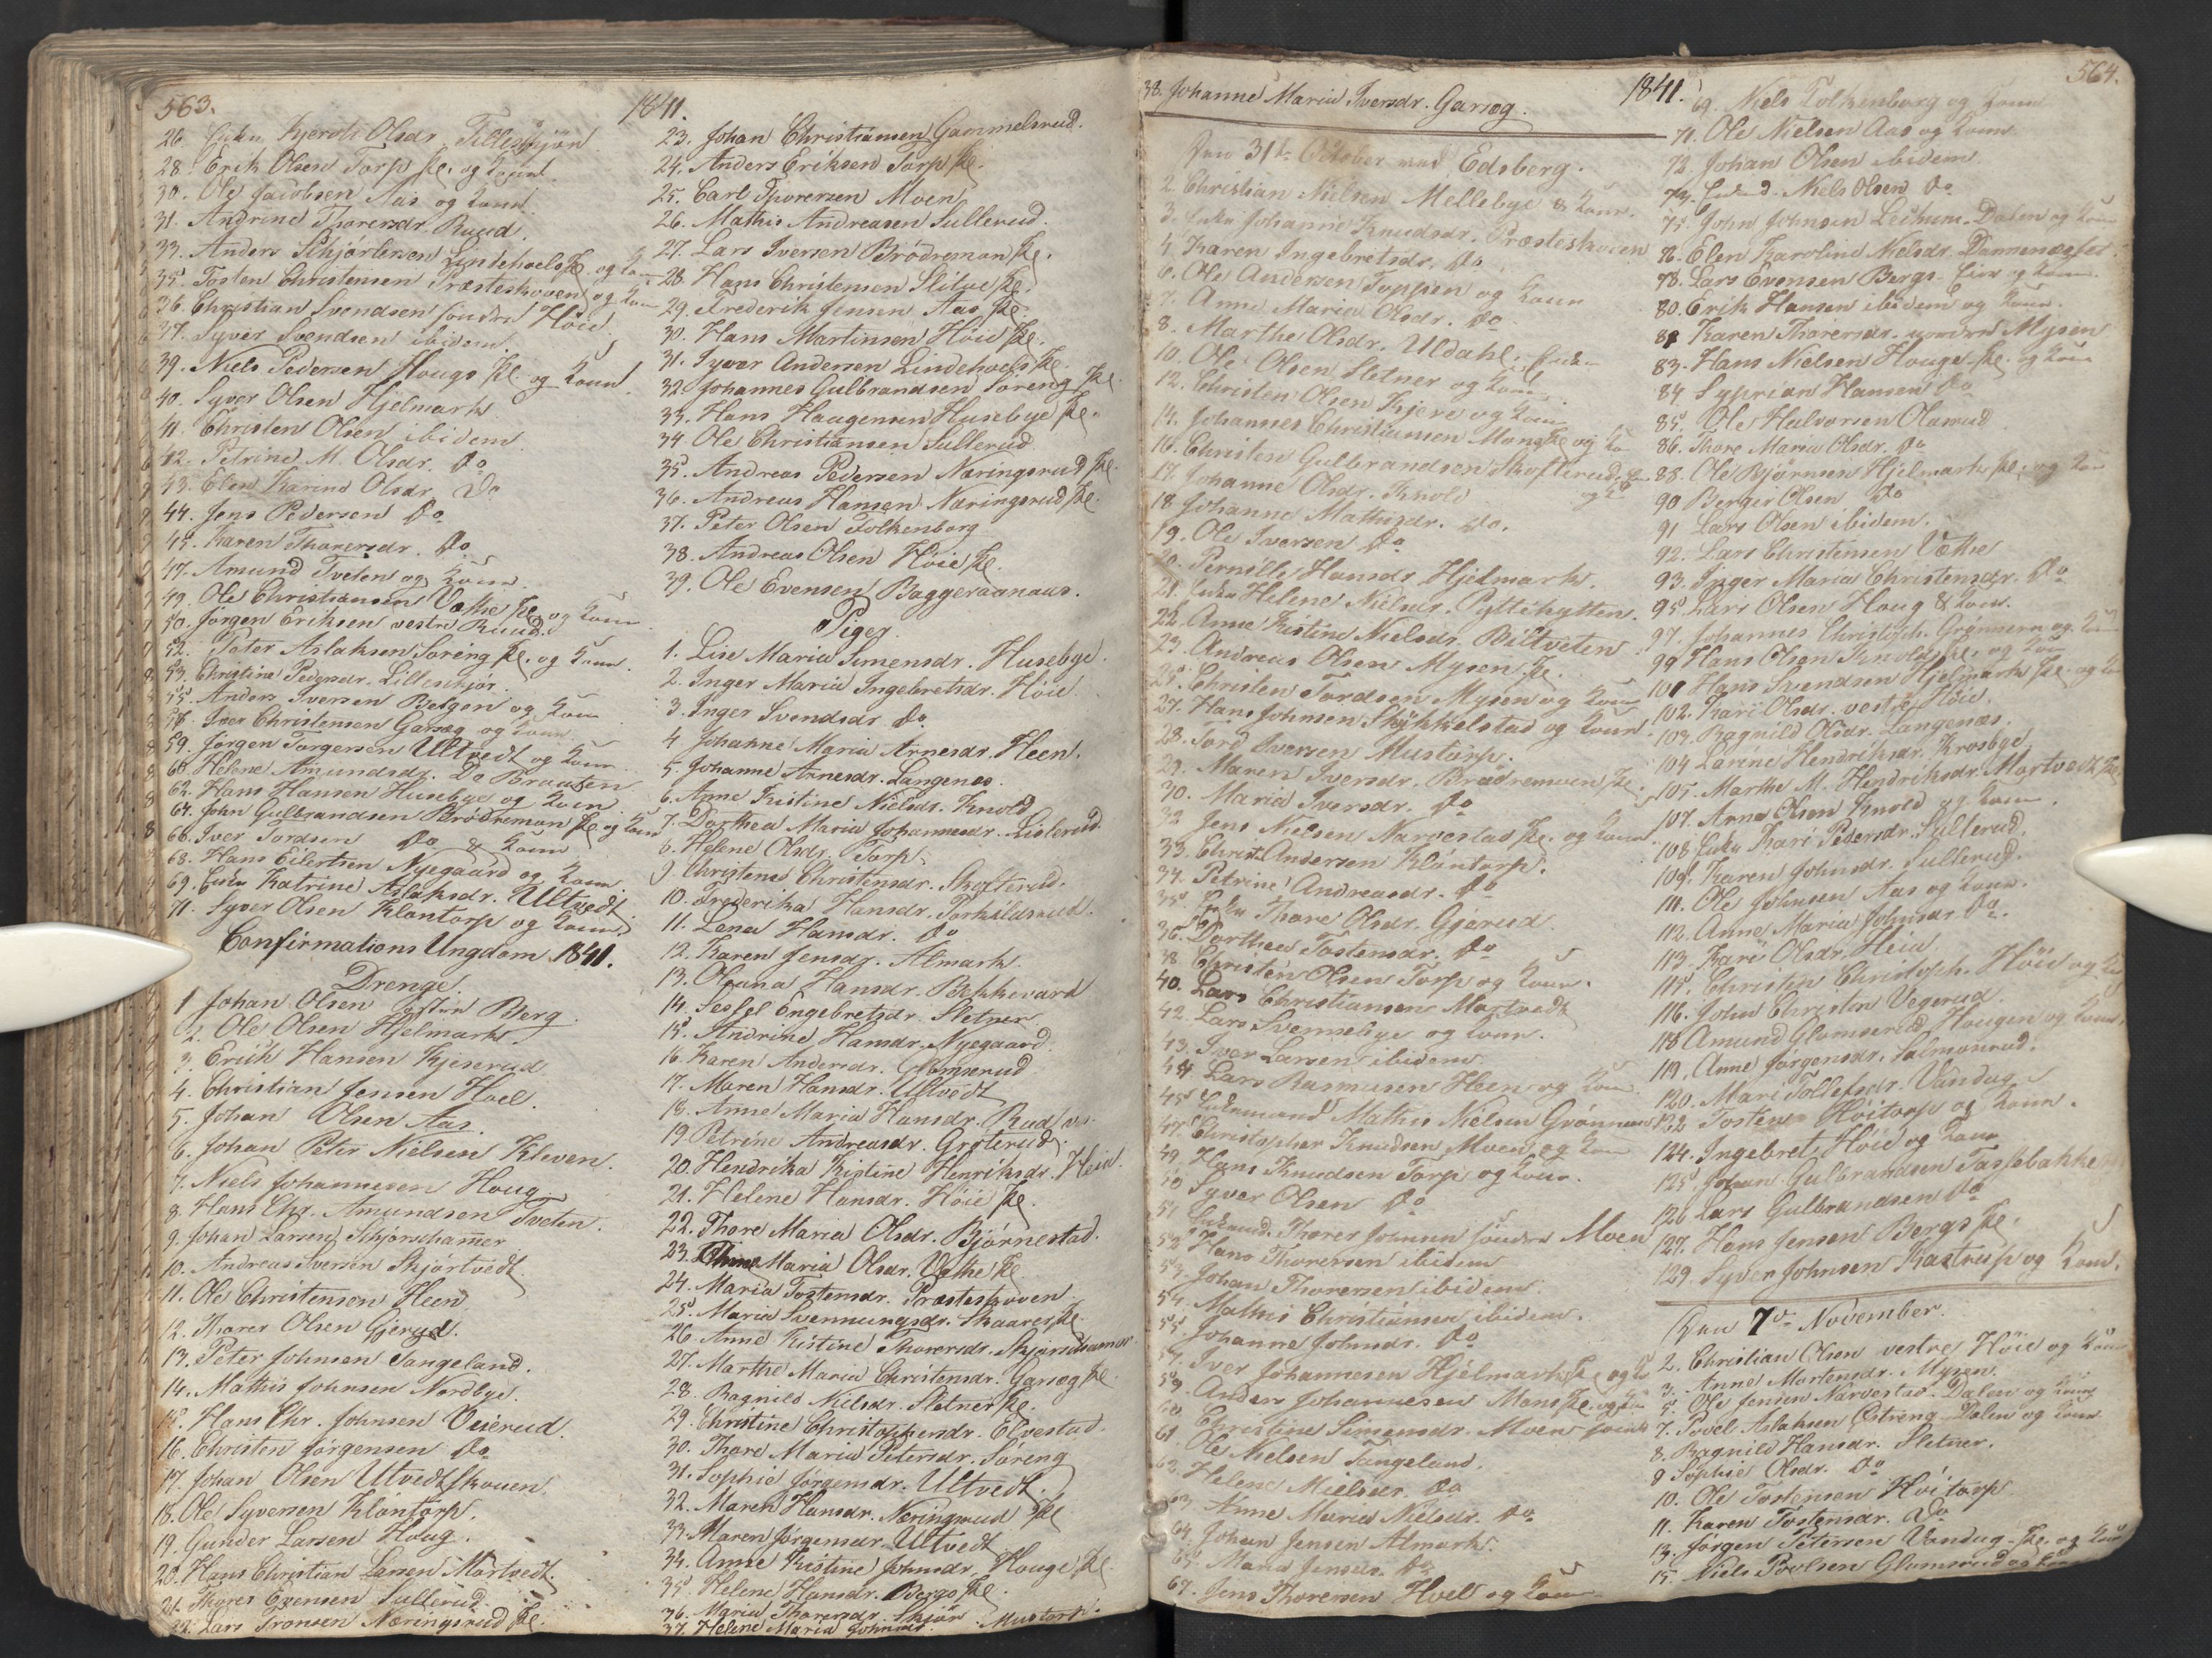 563.
1841.
26. Enken Kjersti Olsdr. Tillesskjön
28. Erik Olsen Torp Ee. og Kone.
30. Ole Jacobsen Aas og Kone.
31. Andrine Thorersdr. Ruud.
33. Anders Skjörtersen Lindehoels Ee. og Kone
35. Tosten Christensen Præsteskoven og Kone
36. Christian Svendsen søndre Höie.
37. Syver Svendsen ibidem
39. Niels Pedersen Hougs Ee. og Kone.
40. Syver Olsen Hjelmark
41. Christen Olsen ibidem
42. Petrine M. Olsdr. Do
43. Elen Karine Olsdr. Do
44. Jens Pedersen Do
45. Karen Thorersdr. Do
47. Amund Tveten og Kone.
49. Ole Christiansen Vethe Ee. og Kone
50. Jörgen Eriksen vestre Ruud.
52. Peter Aslaksen Soreng Ee. og Kone.
53. Christine Pedersdr. Lilleskjör.
55. Anders Iversen Bergen og Kone
57. Iver Christensen Garseg og Kone
59. Jörgen Torgersen Ultvedt og Kone
60. Helene Amundsdr. Do Braaten
62. Hans Hansen Husebye og Kone
64. John Gulbrandsen Brödremon Ee. og Kone
66. Iver Tordsen Do & Kone
68. Hans Eilertsen Nyegaard og Kone
69. Enken Katrine Aslaksdr. Ultvedt
71. Syver Olsen Klöntorp og Kone.
Confirmations Ungdom 1841.
Drenge.
1 Johan Olsen östre Berg.
2. Ole Olsen Hjelmark.
3. Erich Hansen Kjeserud
4. Christian Jensen Hoel.
5. Johan Olsen Aas.
6. Johan Peter Nielsen Kleven.
7. Niels Johannesen Houg
8. Hans Chr. Amundsen Tveten.
9. Johan Larsen Skjörshamer
10. Andreas Iversen Skjörtvedt
11. Ole Christensen Heen
12. Thorer Olsen Gjerud.
13. Peter Johnsen Tangeland.
14. Mathis Johnsen Nordbye.
15. Hans Chr. Johnsen Veierud.
16. Christen Jörgensen Do
17. Johan Olsen Utvedtskouen
18. Ole Syversen Klöntorp.
19. Gunder Larsen Houg.
20. Hans Christian Larsen Mörtvedt.
21. Thorer Evensen Sullerud
22. Lars Tronsen Næringsrud Ee.
23. Johan Christiansen Gammelsrud.
24. Anders Eriksen Torp Ee.
25. Carl Thorersen Moen
26. Mathis Andreasen Sullerud.
27. Lars Iversen Brödremon Ee.
28. Hans Christensen Slitve Ee.
29. Frederik Jensen Aas Ee.
30. Hans Martinsen Höie Ee.
31. Syver Andersen Lindehoels Ee.
32. Johannes Gulbrandsen Soreng Ee.
33. Hans Haagensen Husebye Ee.
34. Ole Christiansen Sullerud
35. Andreas Pedersen Næringsrud Ee.
36. Andreas Hansen Næringsrud Ee.
37. Peter Olsen Folkenborg
38. Andreas Olsen Höie Ee.
39. Ole Evensen Baggeraanaas.
Piger.
1. Lise Maria Simensdr. Husebye.
2. Inger Maria Ingebretsdr. Höie
3. Inger Svendsdr. Do
4 Johanne Maria Arnesdr. Heen.
5. Johanne Arnesdr. Langenes
6. Anne Kistine Nielsdr. Knold
7. Dorthea Maria Johannesdr. Lislerud
8. Helene Olsdr. Torp.
9. Christene Christensdr. Skofterud.
10. Frederika Hansdr. Torkildsrud.
11. Lena Hansdr. Do
12. Karen Jensdr. Almark.
13. Oleana Hansdr. Bekkevard
14. Sessel Engebretsdr. Sletner
15. Andrine Hansdr. Nyegaard
16. Karen Andersdr. Glomserud
17. Maren Hansdr. Ultvedt
18. Anne Maria Hansdr. Rud
19 Petrine Andreasdr. Groterud.
20. Hendrika Kistine Henriksdr. Heia.
21. Helene Hansdr. Höie Ee.
22. Thore Maria Olsdr. Björnestad.
23. Maria Olsdr. Vethe Ee
24. Maria Tostensdr. Præsteskoven
25. Maria Svenningsdr. Skaarer Ee.
26. Anne Kistine Thorersdr. Skjörshamer
27. Marthe Maria Christensdr. Garseg Ee.
28. Ragnild Nielsdr. Sletner Ee.
29. Christine Christophersdr. Elvestad
30. Thore Maria Petersdr. Soreng
31. Sophie Jörgensdr. Ultvedt.
32. Maren Hansdr. Næringsrud Ee
33. Maren Jörgensdr. Ultvedt
34. Anne Kistine Johnsdr. Houge Ee.
35. Helene Hansdr. Bergs Ee.
36. Maria Thorersdr. Skjör
37. Helene Maria Johnsdr. Mustorp.
1841.
564.
38. Johanne Maria Iversdr. Garseg.
Den 31te October ved Edsberg.
2. Christian Nielsen Mellebye & Kone.
3. Enken Johanne Knudsdr. Præsteskoven
4 Karen Ingebretsdr. Do
6. Ole Andersen Toppen og Kone
7. Anne Maria Olsdr. Do
8. Marthe Olsdr. Uldahl. Enken
10. Ole Olsen Sletner og Kone
12. Christen Olsen Kjere og Kone
14. Johannes Christiansen Mons Ee og Ko
16. Christen Gulbrandsen Skofterud Ee. og K
17. Johanne Olsdr. Knold
18 Johanne Mathisdr. Do.
19. Ole Iversen Do
20. Pernille Hansdr. Hjelmark.
21. Enken Helene Nielsdr. Pyttehytten.
22. Anne Kistine Nielsdr. Biltveten
23. Andreas Olsen Mysen Ee.
25. Christen Tordsen Mysen og Kone
27. Hans Johnsen Skykkelstad og Kone
28. Tord Iversen Mustorp.
29. Maren Iversdr. Brødremoen Ee.
30. Maria Iversdr. Do
32 Jens Nielsen Narvestad Ee. og Kone
33. Christ. Andersen Klöntorp.
34. Petrine Andreasdr. Do
35 Enken Thore Olsdr. Gjerud
36. Dorthea Tostensdr. Do
38. Christen Olsen Torp og Kone.
40. Lars Christiansen Mörtvedt
42. Lars Svennebye og Kone.
43. Iver Larsen ibidem
44 Lars Rasmusen Heen og Kone
45 Enkemand Mathis Nielsen Grönnern
47. Christopher Knudsen Moen og Kone
49. Hans Knudsen Torp og Kone.
50 Syver Olsen Do
51 Enkemd. Thorer Johnsen søndre Moen
52 Hans Thorersen ibidem
53. Johan Thorersen ibidem.
54. Mathis Christiansen ibidem.
55. Johanne Johnsdr. Do
57. Iver Johannesen Hjelmark Ee og K
59. Anders Johannesen Mons Ee. og Ko
60. Christine Simensdr. Moen
61. Ole Nielsen Tangeland.
62. Helene Nielsdr. Do
63. Anne Maria Nielsdr. Do
64. Johan Jensen Almark.
65. Maria Jensdr. Do
67. Jens Thorersen Hoel og Kone
69. Niels Folkenborg og Kone
71. Ole Nielsen Aas og Kone.
72 Johan Olsen ibidem.
73. Enkemd. Niels Olsen Do
75 John Johnsen Lechum-Dalen og Kone
76. Elen Karoline Nielsdr. Dannenæsset
78. Lars Evensen Bergs-Eier og Kone.
80. Erik Hansen ibidem og Kone.
81 Karen Thorersdr. nordre Mysen
83. Hans Nielsen Houge-Ee. og Kone
84 Syprian Hansen Do
85. Ole Halvorsen Olasrud
86. Thore Maria Olsdr. Do
88. Ole Björnsen Hjelmark Ee. og Kon
90 Berger Olsen Do
91 Lars Olsen ibidem.
92. Lars Christensen Vethe
93. Inger Maria Christensdr. Do
95 Lars Olsen Houg & Kone.
97. Johannes Christoph. Grönnern og Ko
99 Hans Olsen Knolds Ee. og Kon
101 Hans Svendsen Hjelmark Ee og Ko
102. Kari Olsdr. vestre Höie.
103. Ragnild Olsdr. Langenæs.
104 Larine Hendriksdr. Krosbye
105. Marthe M. Hendriksdr. Mortvedt Ee.
107. Arne Olsen Knold og Kone.
108 Enken Kari Pedersdr. Sullerud.
109. Karen Johnsdr. Sullerud.
111. Ole Johnsen Aas og Kone.
112. Anne Maria Johnsdr. Do.
113. Kari Olsdr. Heia.
115. Christen Christoph. Höie og Ko
116. John Christen Vegerud.
118 Amund Glomserud Haugen og Kone.
119. Anne Jörgensdr. Salmonrud.
120. Mari Tollefsdr. Vandug
122 Tosten Höitorp og Kone.
124. Ingebret Höie og Kone
125 Johan Gulbrandsen Tassebakke
126 Lars Gulbrandsen Do
127. Hans Jensen Bergs Ee.
129. Syver Johnsen Kastrup og Kone.
Den 7de November.
2. Christian Olsen vestre Höie og Kone
3. Anne Mortensdr. Mysen.
5. Ole Jensen Narvestad-Dalen og Kone
7. Povel Aslaksen Østreng-Dalen og Kone
8. Ragnild Hansdr. Sletner.
9 Sophie Olsdr. Do
10. Ole Tostensen Höitorp
11. Karen Tostensdr. Do
13. Jörgen Petersen Vandug-Ee. og Kone
15. Niels Povlsen Glomsrud og Kone